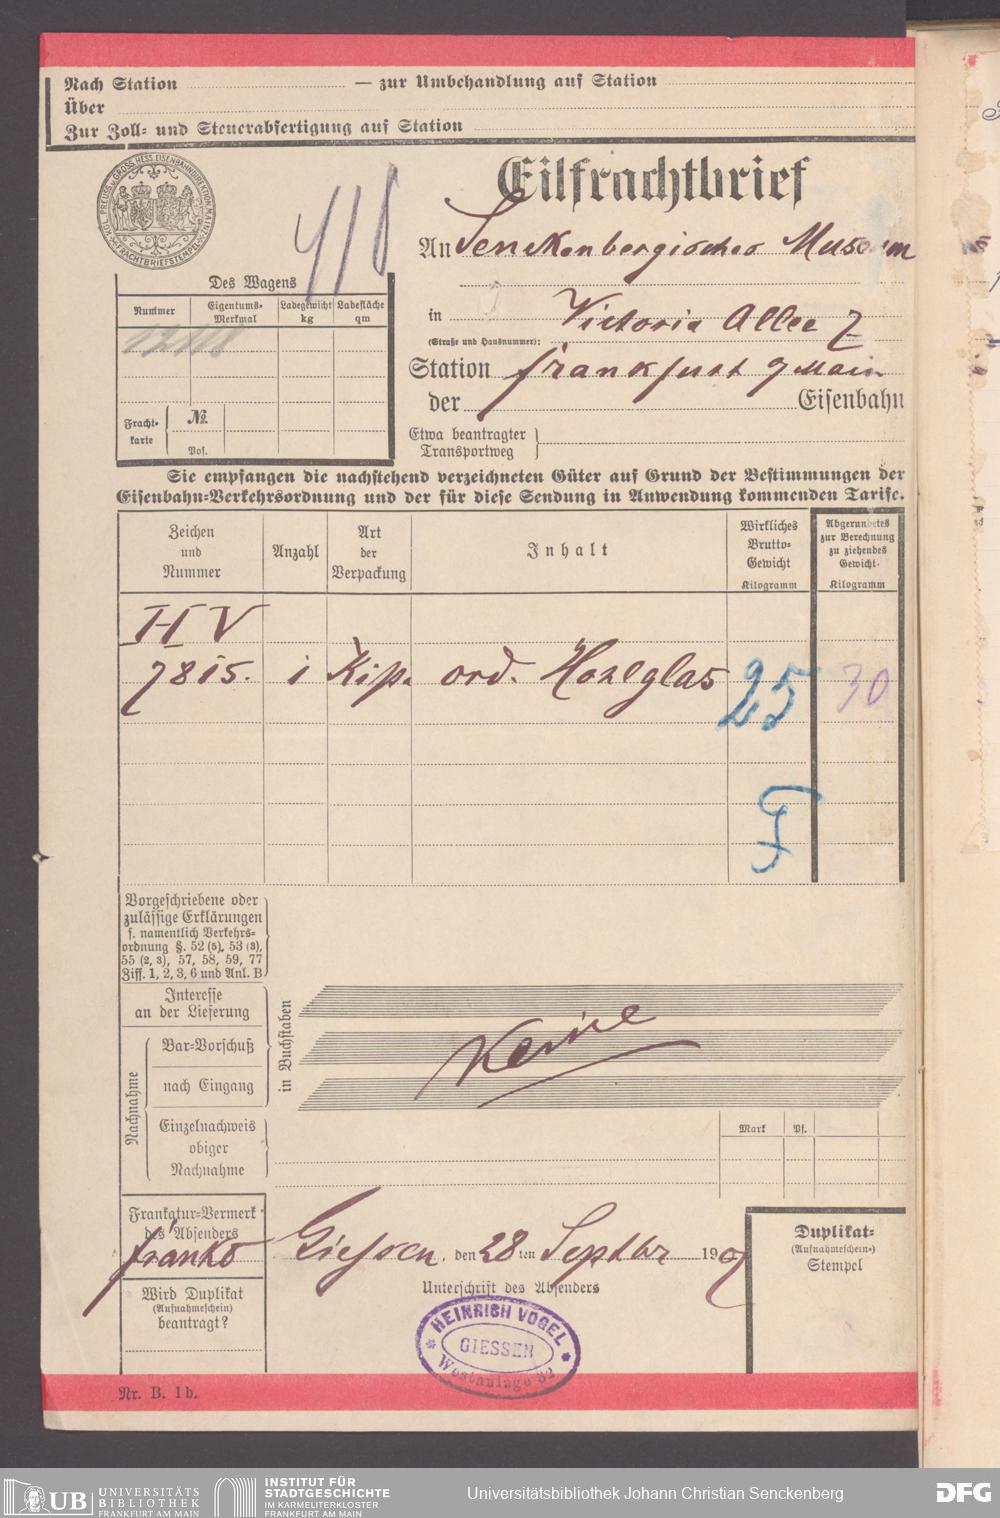 Nach Station — zur Umbehandlung auf Station
Über
Zur Zoll- und Steuerabfertigung auf Station
KGL. PREUSS. u. GROSS. HESS. EISENBAHNDIREKTION MAINZ
FRACHTBRIEFSTEMPEL
418
Eilfrachtbrief
An Senckenbergisches Museum
in Victoria Allee 7
(Straße und Hausnummer):
Station Frankfurt a Main
der Eisenbahn
Etwa beantragter
Transportweg
Des Wagens
Nummer Eigentums-Merkmal Ladegewicht kg Ladefläche qm
Fracht-
karte
No.
Pos.
Sie empfangen die nachstehend verzeichneten Güter auf Grund der Bestimmungen der
Eisenbahn-Verkehrsordnung und der für diese Sendung in Anwendung kommenden Tarife.
Zeichen und Nummer Anzahl Art der Verpackung Inhalt Wirkliches Brutto-Gewicht Kilogramm Abgerundetes zur Berechnung zu ziehendes Gewicht Kilogramm
H V
7815. 1 Kip. ord. Hohlglas 25 30
Vorgeschriebene oder
zulässige Erklärungen
s. namentlich Verkehrs-
ordnung §. 52 (5), 53 (3),
55 (2, 3), 57, 58, 59, 77
Ziff. 1, 2, 3, 6 und Anl. B
Interesse
an der Lieferung
Nachnahme
Bar-Vorschuß
nach Eingang
in Buchstaben
Keine
Einzelnachweis
obiger
Nachnahme
Mark Pf.
Frankatur-Vermerk
des Absenders
franko
Giessen. den 28 ten Septbr 1907
Unterschrift des Absenders
Wird Duplikat
(Aufnahmeschein)
beantragt?
Duplikat-
(Aufnahmeschein-)
Stempel
HEINRICH VOGEL
GIESSEN
Westanlage 32
Nr. B. 1b.
UB UNIVERSITÄTS
BIBLIOTHEK
FRANKFURT AM MAIN
INSTITUT FÜR
STADTGESCHICHTE
IM KARMELITERKLOSTER
FRANKFURT AM MAIN
Universitätsbibliothek Johann Christian Senckenberg
DFG